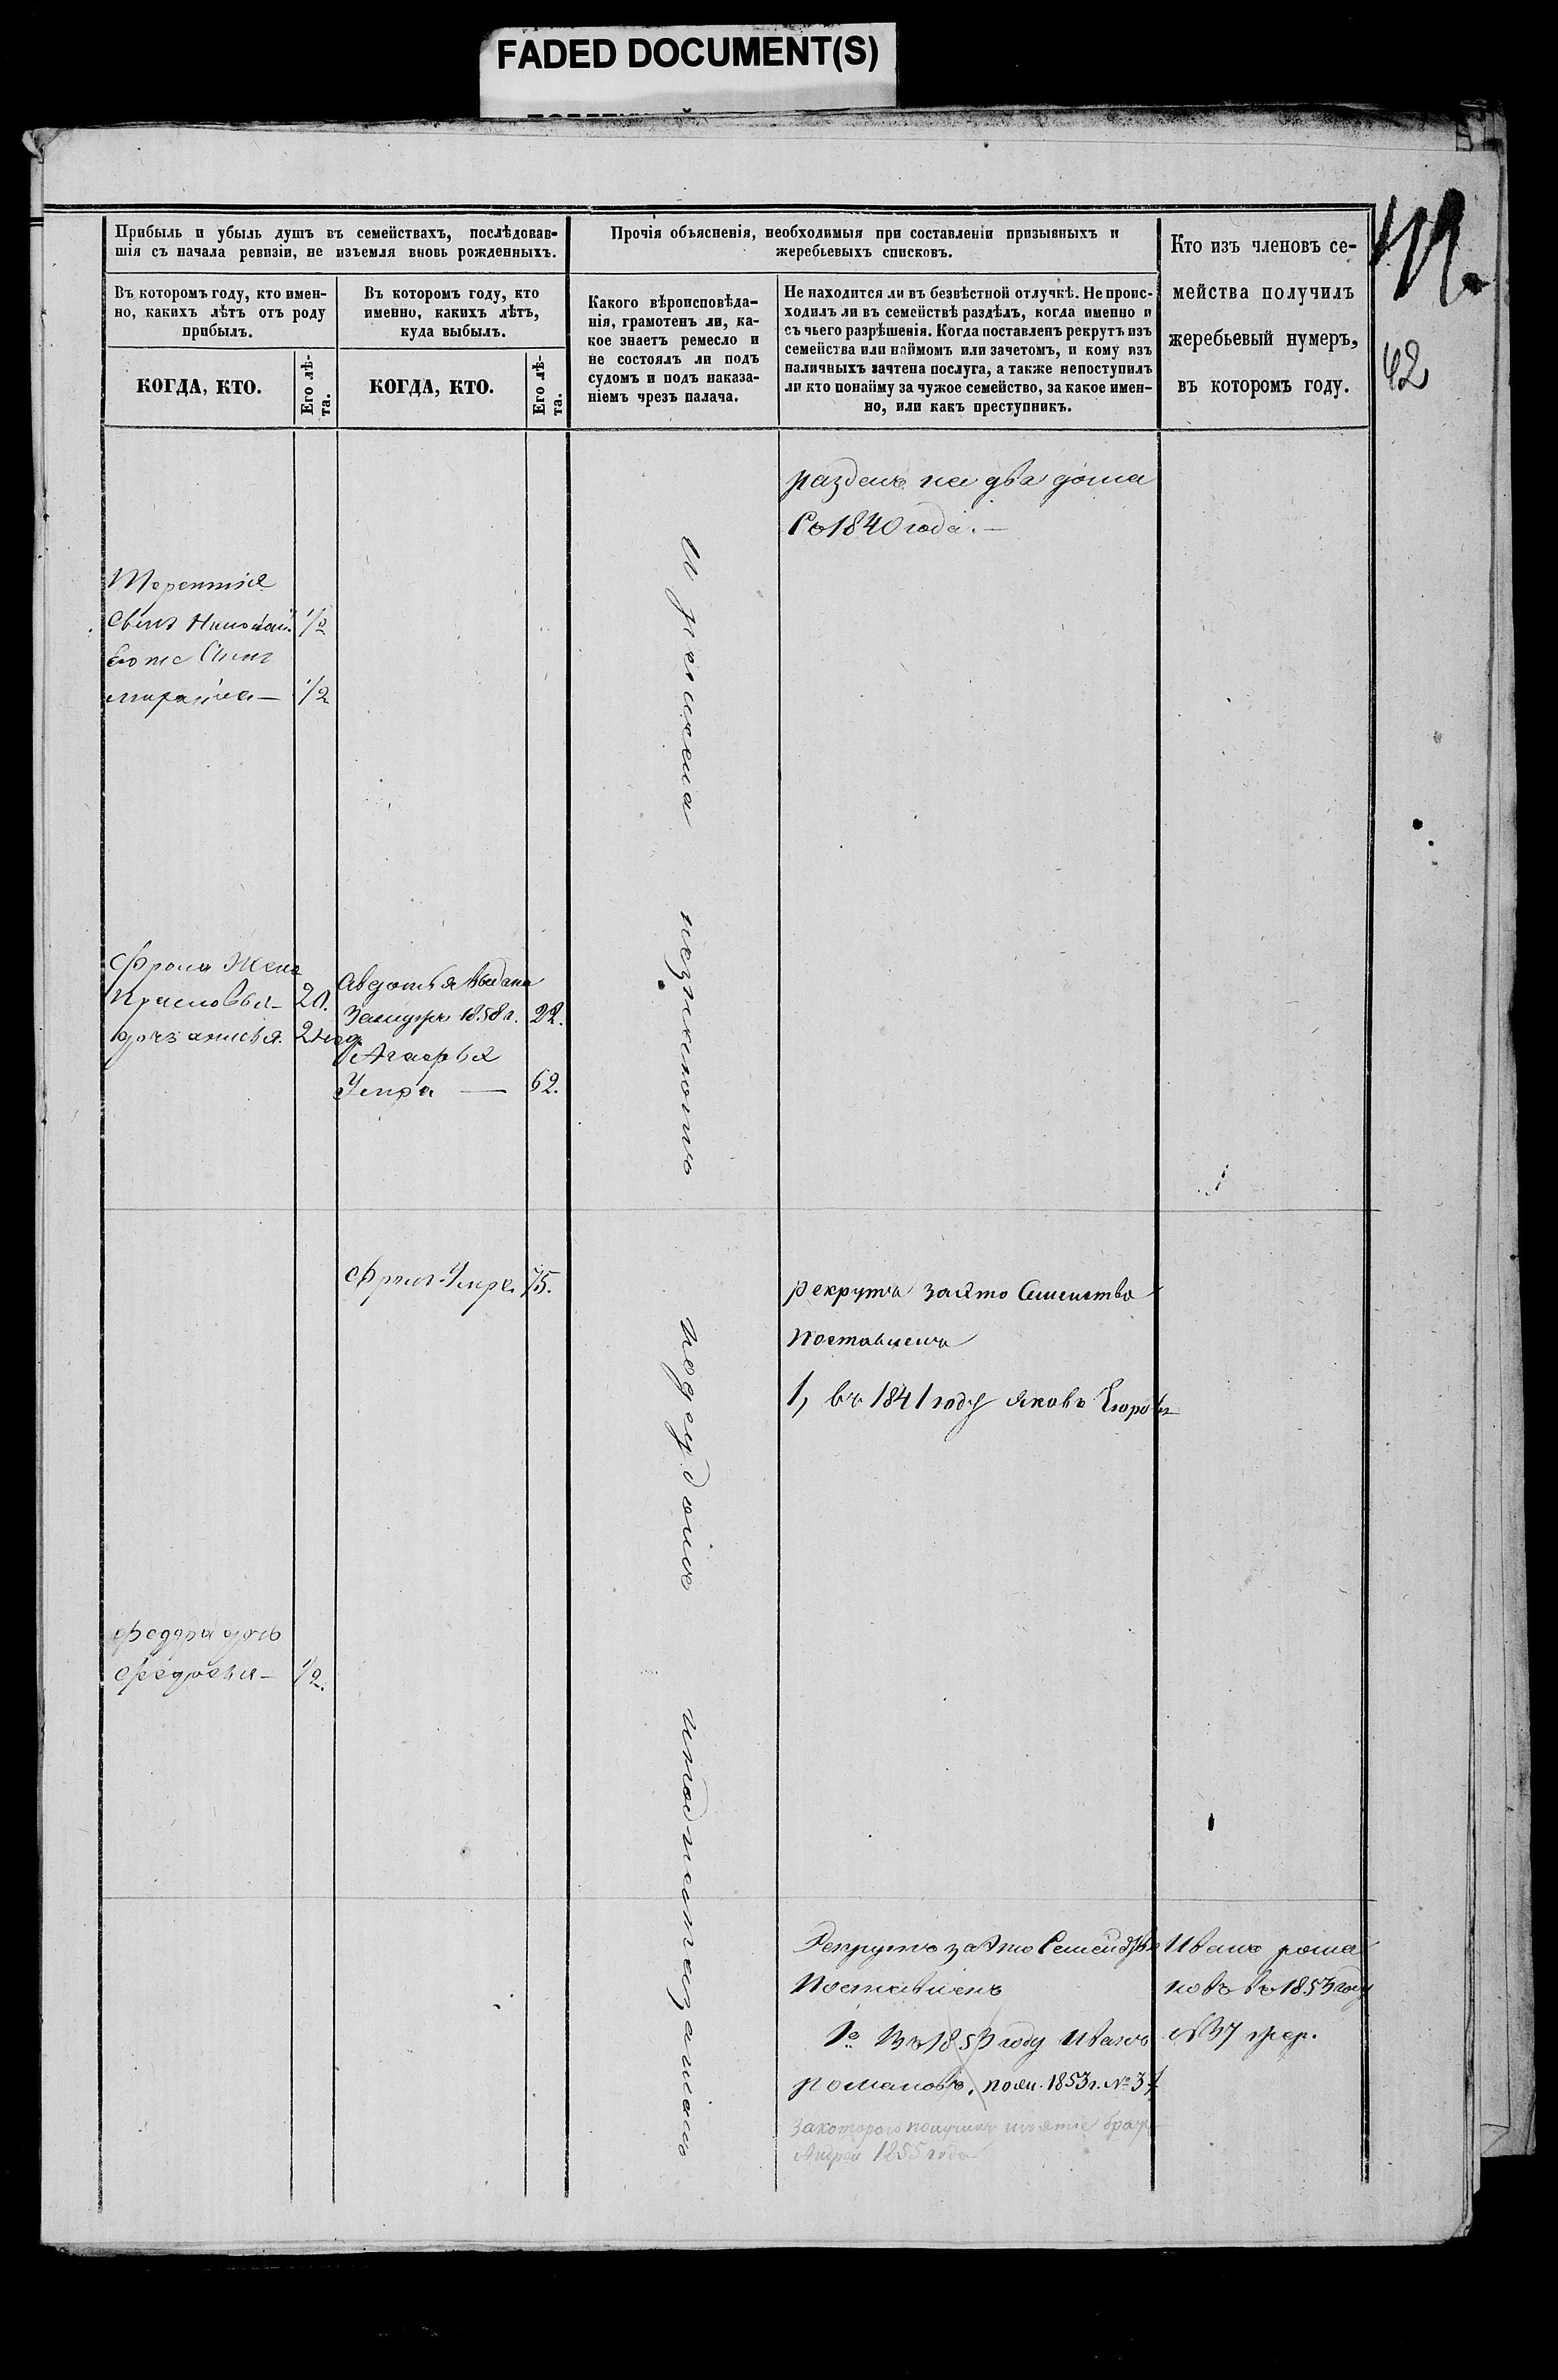 FADED DOCUMENT(S)
Прибыль и убыль душъ въ семействахъ, послѣдовав-
шія съ начала ревизіи, не изъемля вновь рожденныхъ.
Прочія объясненія, необходимыя при составленіи призывныхъ и
жеребьевыхъ списковъ.
Кто изъ членовъ се-
мейства получилъ
жеребьевый нумеръ,
въ которомъ году.
42
Въ которомъ году, кто имен-
но, какихъ лѣтъ отъ роду
прибылъ.
Въ которомъ году, кто
именно, какихъ лѣтъ,
куда выбылъ.
Какого вѣроисповѣда-
нія, грамотенъ ли, ка-
кое знаетъ ремесло и
не состоялъ ли подъ
судомъ и подъ наказа-
ніемъ чрезъ палача.
Не находится ли въ безвѣстной отлучкѣ. Не проис-
ходилъ ли въ семействѣ раздѣлъ, когда именно и
съ чьего разрѣшенія. Когда поставленъ рекрутъ изъ
семейства или наймомъ или зачетомъ, и кому изъ
наличныхъ зачтена послуга, а также непоступилъ
ли кто понайму за чужое семейство, за какое имен-
но, или какъ преступникъ.
КОГДА, КТО.
Его лѣ-
та.
КОГДА, КТО.
Его лѣ-
та.
на два дома
Съ 1840 года. —
Терентія
Сынъ Николай 1/2
Его же Сынъ
1/2
Фрола Жена
20.
дочь 2 год.
Авдотья выдана
Замужъ 1858 г. 22.
Агафья
Умра — 62.
ремесла
незнаютъ
Фролъ Умре. 75.
рекрутъ за это Семейство
поставленъ
1, въ 1841 году Яковъ Егоровъ
Федора дочь
Федосья — 1/2.
Рекрутъ за это
Поставленъ
1е Въ 1853 году Иванъ
Романовъ, 1853 г. № 37
за которого получилъ братъ
Андрей 1855 года
Иванъ рома
новъ въ 1853 году
№ 37 жер.